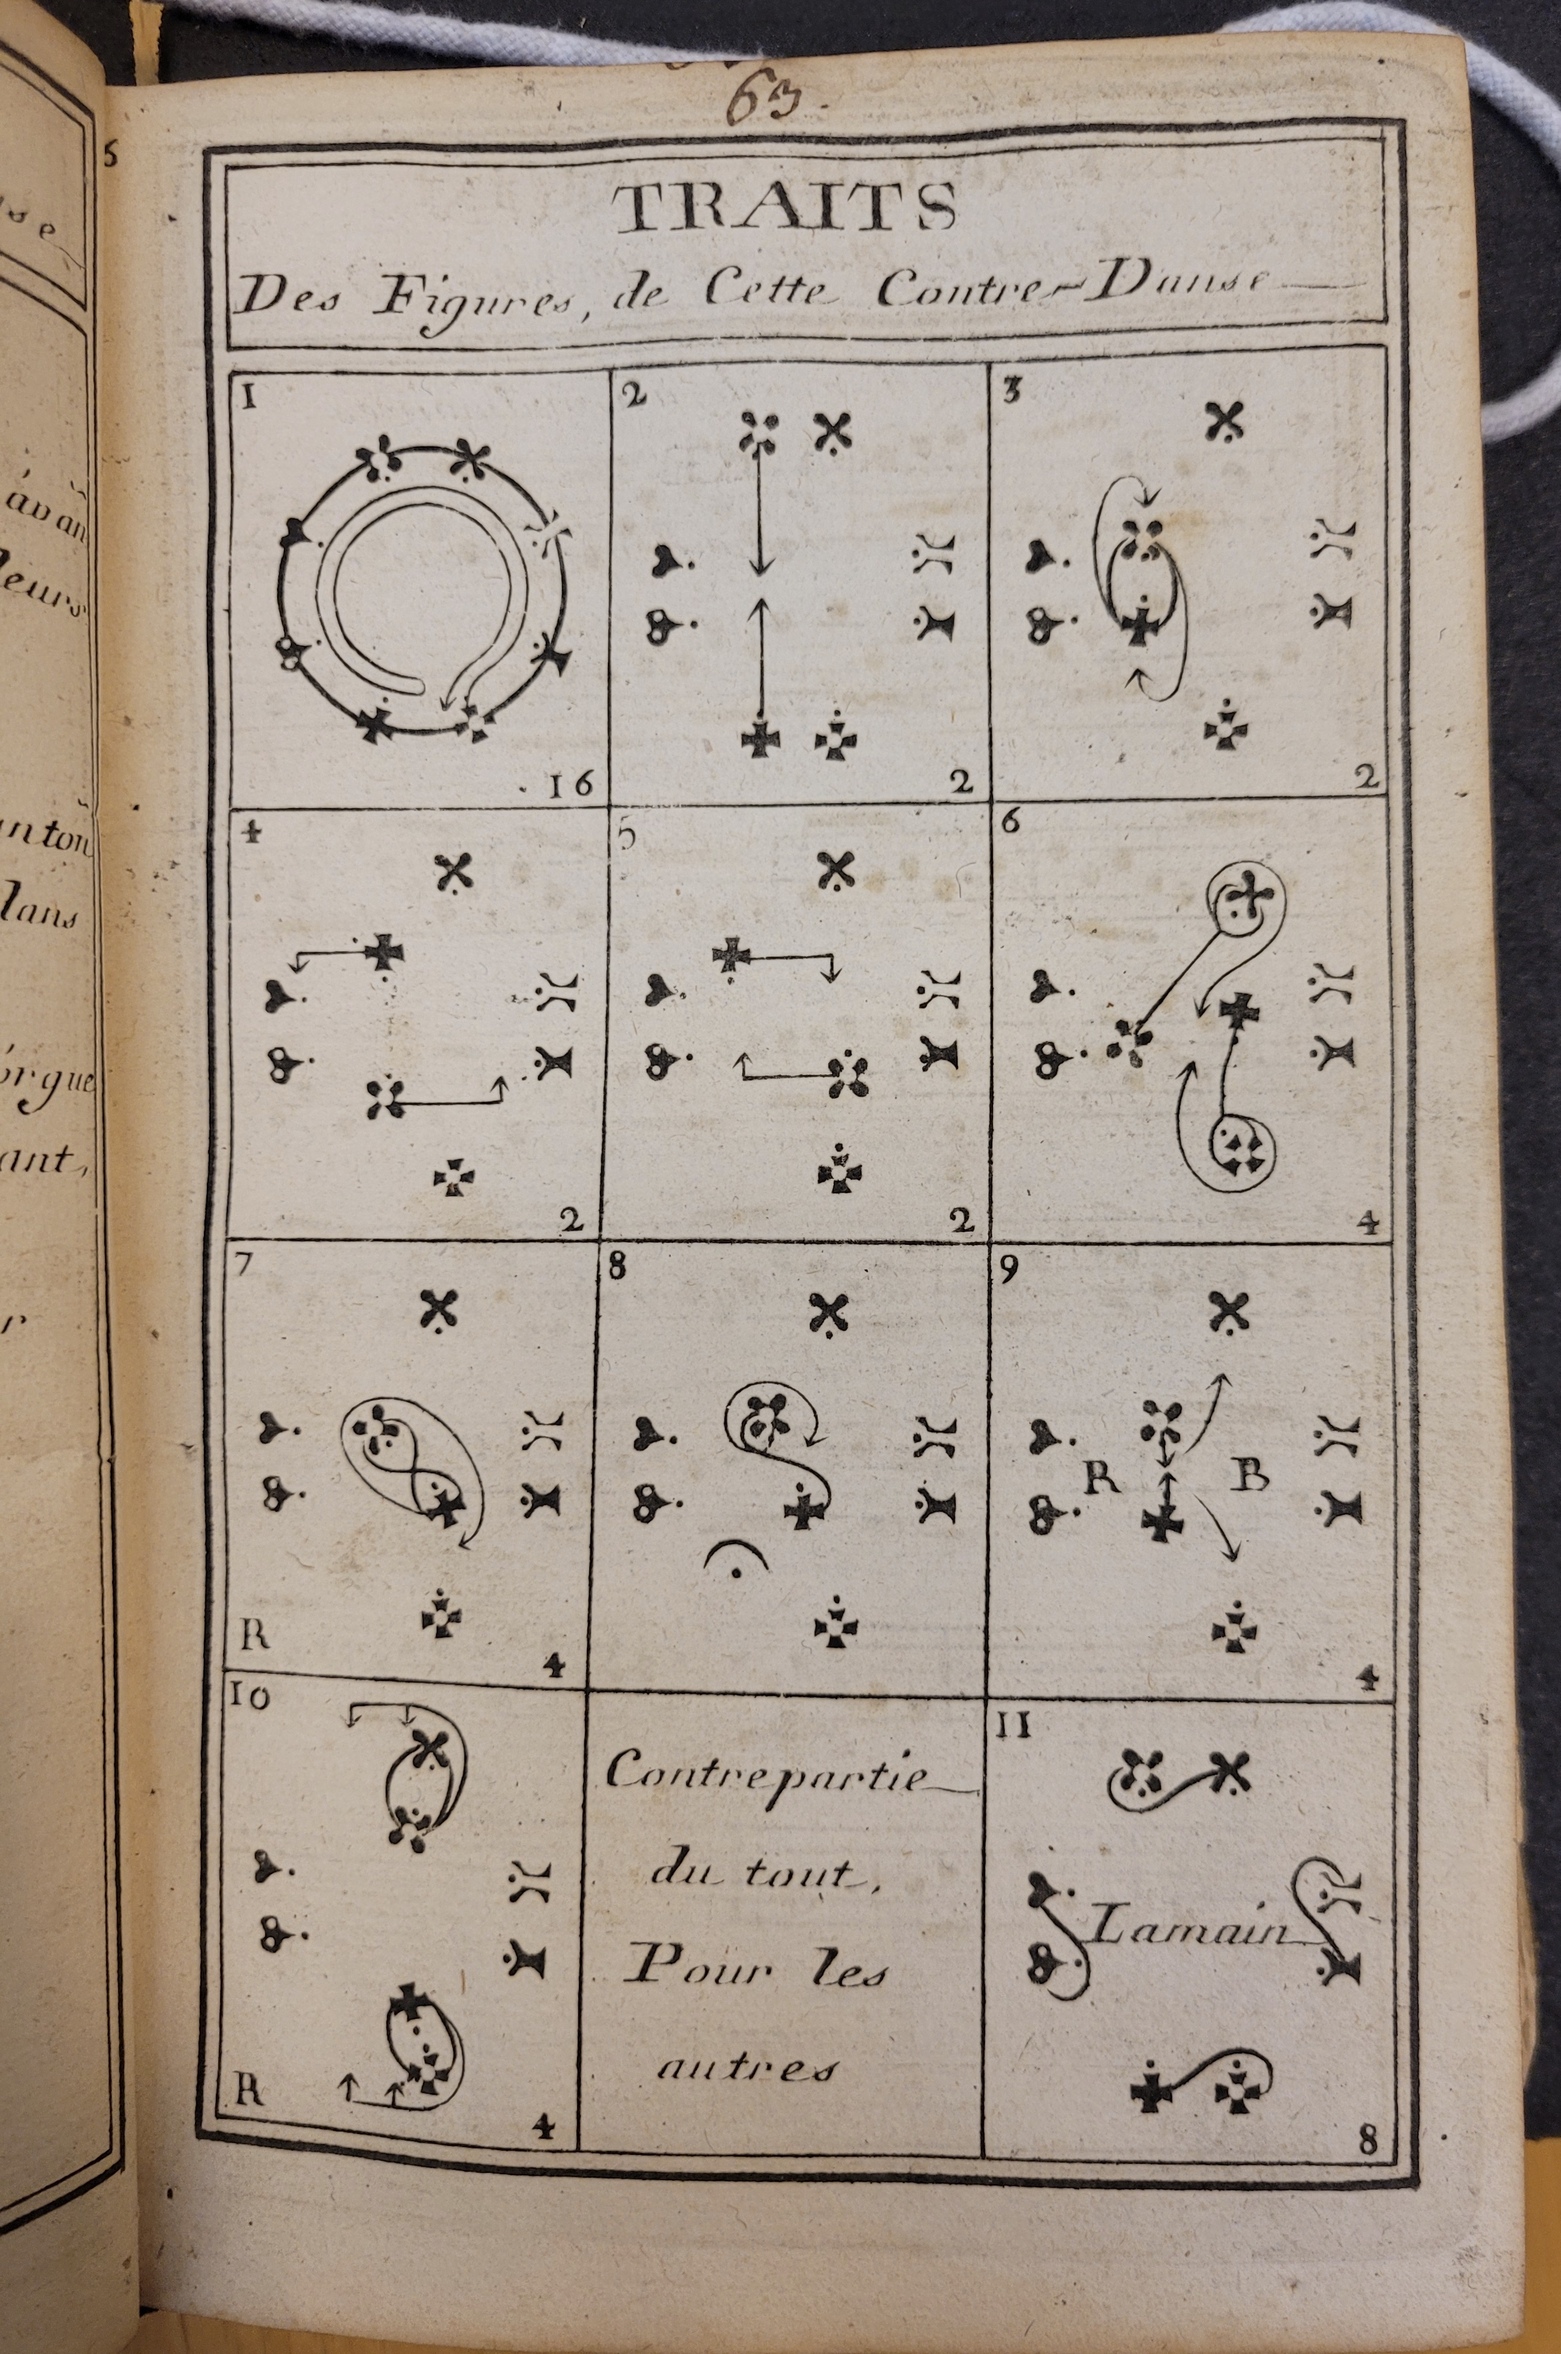 63.
TRAITS
Des Figures, de Cette Contre-Danse
1
16
2
2
3
2
4
2
5
2
6
4
7
R
4
8
9
R B
4
10
R
4
Contrepartie
du tout.
Pour les
autres
11
Lamain
8
5
ávan
leurs
lans
órgue
ant,
r